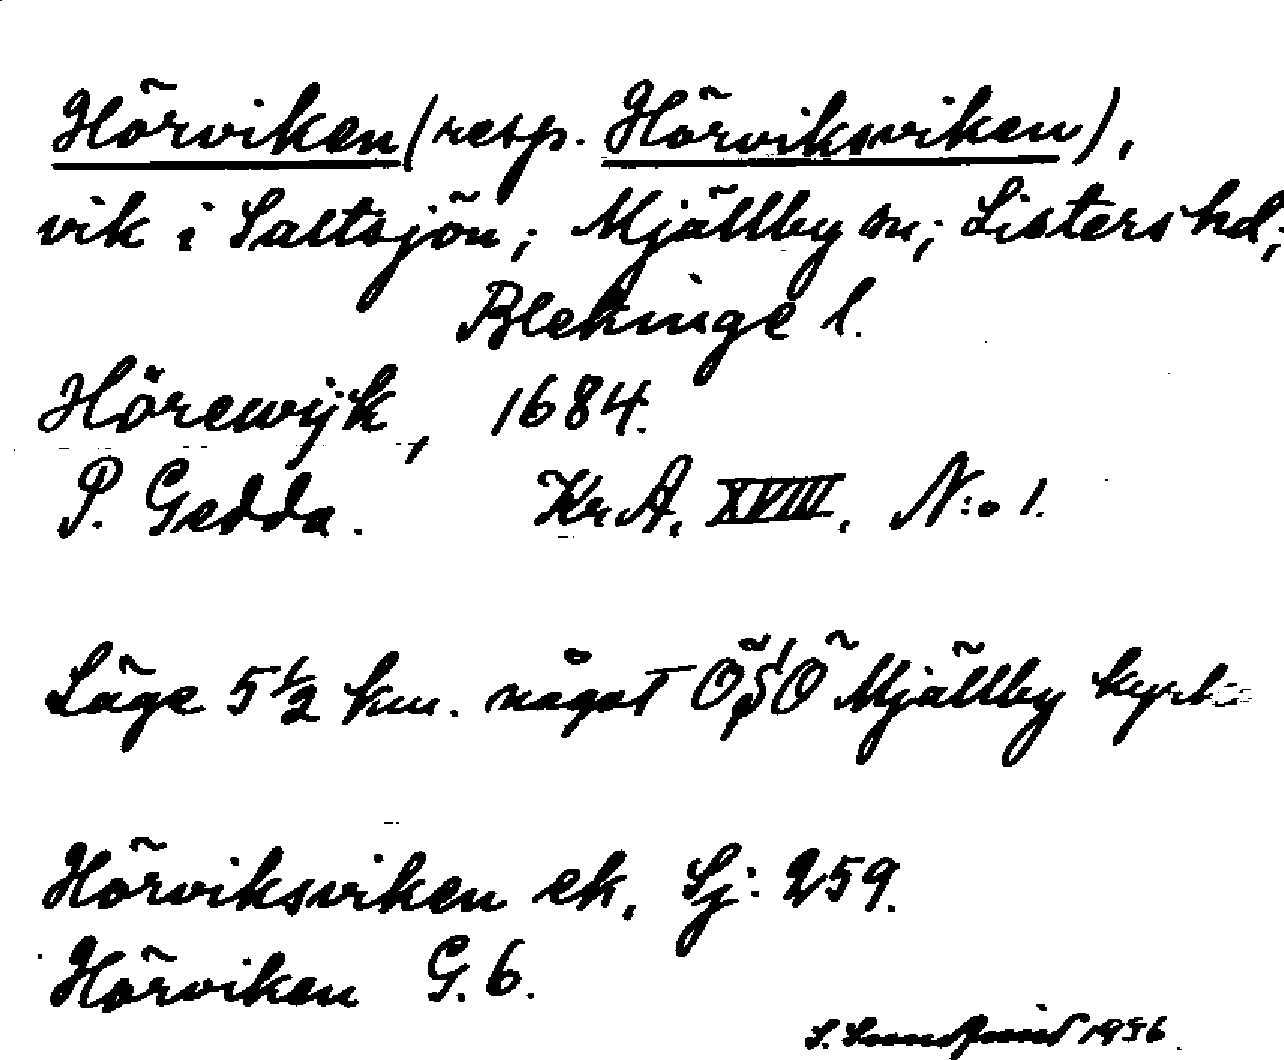 Hörviken (resp. Hörviksviken),
vik i Saltsjön; Mjällby sn; Listers hd;
Blekinge l.
Hörewijk, 1684.
P. Gedda. Kr A. XVIII. N:o 1.
Läge 5 1/2 km. något ÖSÖ Mjällby kyrka
Hörviksviken ek. Sj: 259.
Hörviken G. 6.
S. 1956